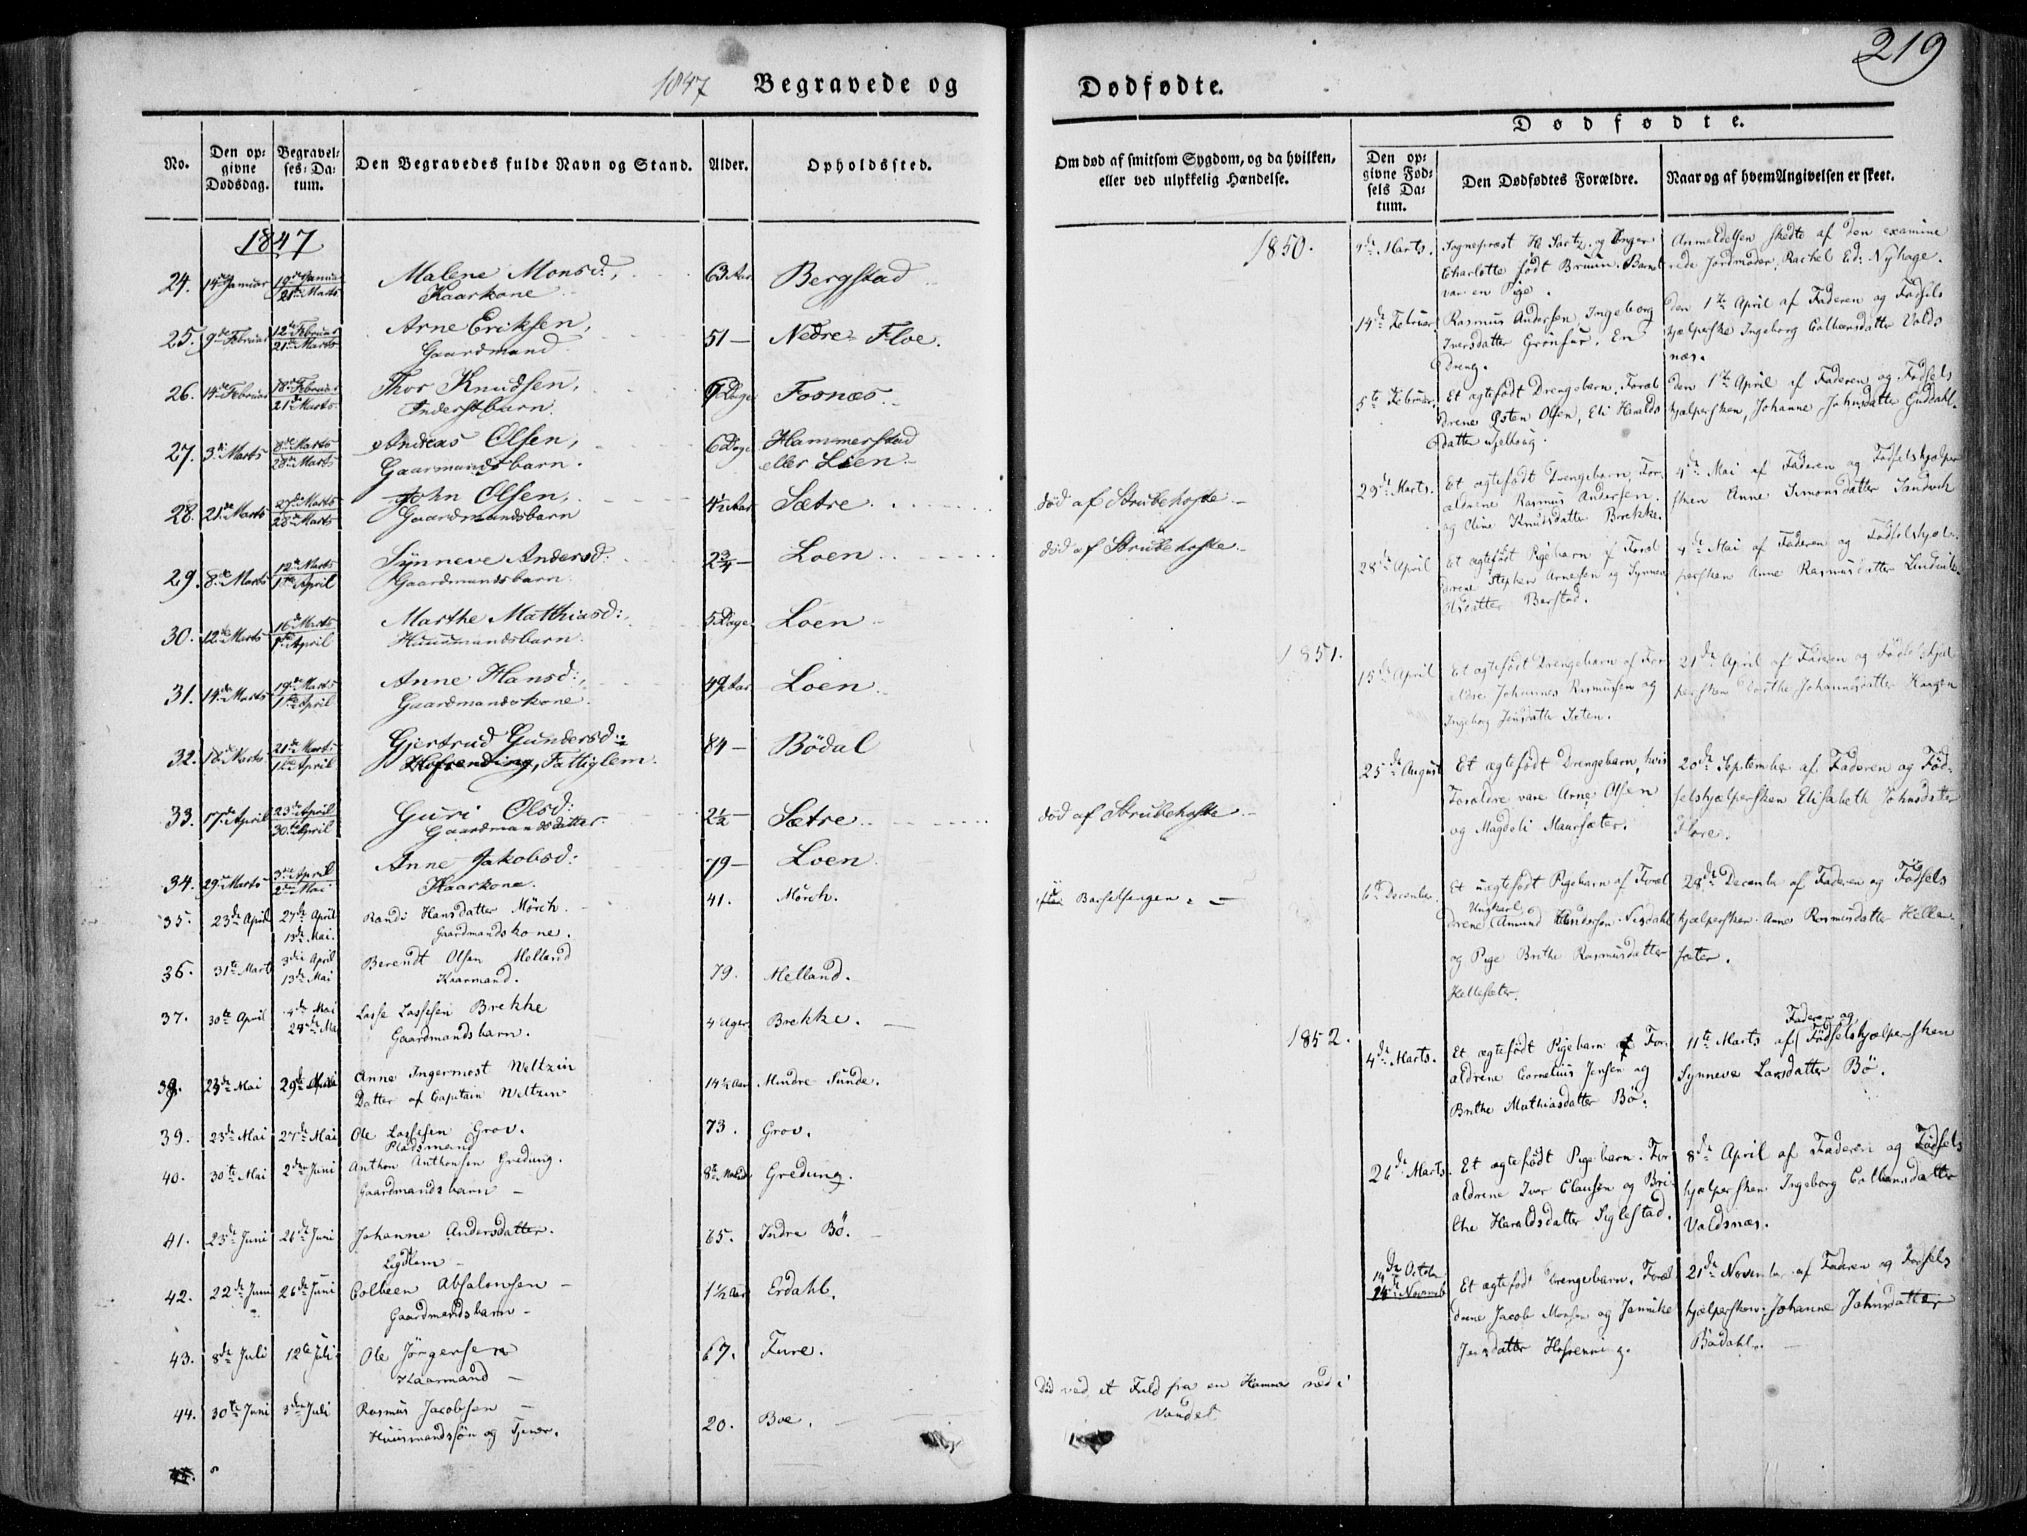 219
1847 Begravede og Dødfødte.
Dødfødte.
No.
Den op-
givne
Dødsdag.
Begravel-
ses-Da-
tum.
Den Begravedes fulde Navn og Stand.
Alder.
Opholdssted.
Om død af smitsom Sygdom, og da hvilken,
eller ved ulykkelig Hændelse.
Den op-
givne Fød-
sels Da-
tum.
Den Dødfødtes Forældre.
Naar og af hvem Angivelsen er skeet.
1847
24. 14de Januar 19de Januar 21de Marts Malene Monsd:, 63 Aar Bergstad
Kaarkone
25. 9de Februar 12te Februar 21de Marts Arne Eriksen, 51 — Nedre Floe.
Gaardmand
26. 14de Februar 18de Februar 21de Marts Thor Knudsen, 9 Dage Fosnæs.
Inderstbarn.
27. 3de Marts 8de Marts 28de Marts Andreas Olsen, 6 Dage Hammerstad
Gaarmandsbarn. eller Loen
28. 21de Marts 27de Marts 28de Marts John Olsen, 4½ Aar Sætre død af Strubehoste
Gaardmandsbarn
29. 8de Marts 12te Marts 1ste April Synneve Andersd: 2¾ — Loen død af Strubehoste
Gaardmandsbarn
30. 12te Marts 16de Marts 1ste April Marthe Matthiasd: 5 Dage Loen
Huusmandsbarn.
31. 14de Marts 19de Marts 1ste April Anne Hansd:, 49 Aar Loen
Gaardmandskone.
32. 18de Marts 21de Marts 1ste April Gjertrud Gundersd: 84 — Bödal
Hofrending, Fattiglem.
33. 17de April 23de April 30te April Guri Olsd: 2½ — Sætre død af Strubehoste
Gaardmandsdatter.
34. 29de Marts 3die April 2den Mai Anne Jakobsd: 79 — Loen
Kaarkone.
35. 23de April 27de April 13de Mai. Randi Hansdatter Mörch. 41. Mörch. Barselsengen
Gaardmandskone.
36. 31te Marts 3die April 13de Mai Berendt Olsen Melland 79. Melland.
Kaarmand.
37. 30te April 4de Mai Lasse Lassesen Brekke 4 Uger Brekke.
Gaardmandsbarn.
38. 23de Mai 29de Anne Ingermost Weltzin 14½ Aar Mindre Sunde.
Datter af Capitain Weltzin
39. 23de Mai 27de Mai Ole Lassesen Grov. 73. Grov.
Pladsmand
40. 30te Mai 2den Juni Anthon Anthonsen Gredung. Gredung.
Gaardmandsbarn —
41. 25de Juni 26de Juni Johanne Andersdatter. 65. Indre Bö.
Legdlem —
42. 22de Juni 26de Juni Colbeen Absalonsen — 1½ Aar Erdahl.
Gaardmandsbarn —
43. 8de Juli 12te Juli Ole Jörgensen 67. Fure.
Kaarmand —
44. 30te Juni 3die Juli Rasmus Jacobsen — 20. Boe. Död ved et Fald fra en Hammer ned i
Huusmandssön og Tjener. Vandet.
1850.
Marts. Sognepræst H. Sartz og Inger
Charlotte født Bruun. Barnet
var en Pige.
Anmeldelsen skedte af den examine
rede Jordmoder, Rachel Ed: Nyhage.
14de Februar Rasmus Andersen, Ingeborg
Iversdatter Grönfur. En
Dreng.
Den 1ste April af Faderen og Födsels
hjælperske Ingeborg Colbensdatter Valds
næs.
5te Februar. Et ægtefødt Drengebarn. Foræl
drene Östen Olsen, Eli Haralds
datter
Den 1ste April af Faderen og Födsels
hjælpersken, Johanne Johnsdatter Guddahl.
29de Marts. Et ægtefødt Drengebarn, For-
ældrene Rasmus Andersen
og Oline Knudsdatter Brekke.
4de Mai af Faderen og Födselshjælper
sken Anne Simonsdatter Sandvik
28de April Et ægtefødt Pigebarn af Foræl
drene Stephen Arnesen og Synneve
Olsdatter Berstad.
4de Mai af Faderen og Födselshjæl-
persken Anne Rasmusdatter
1851.
15de April Et ægtefødt Drengebarn af For
ældre Johannes Rasmussen og
Ingeborg Jensdatter
21de April af Faderen og Födselshjæl
persken Dorthe Johannesdatter Haugen
25de August Et ægtefødt Drengebarn, hvis
Forældre vare Arne Olsen
og Magdeli Maursæter.
20de September af Faderen og Fød-
selshjælpersken Elisabeth Johnsdatter
Flore.
6te December Et uægtefødt Pigebarn af Foræl
drene Ungkarl Amund Andersen
og Pige Brithe Rasmusdatter
Hellesæter.
28de Decembr af Faderen og Födsels
hjælpersken Anne Rasmusdatter Helle
sæter.
1852.
4de Marts. Et ægtefødt Pigebarn af For-
ældrene Cornelius Jensen og
Brithe Mathiasdatter Bö.
11te Marts af Faderen og Födselshjælpersken
Synneve Larsdatter Bö.
26de Marts. Et ægtefødt Pigebarn. For
ældrene Iver Clausön og Bri-
the Haraldsdatter Siglestad.
8de April af Faderen og Födsels
hjælpersken Ingeborg Colbensdatter
Valdsnæs.
14de Octobr
14de Novemb Et ægtefødt Drengebarn. Foræl
drene Jacob Monsen og Jannike
Jensdatter Hofrenning.
21de Novembr af Faderen og Födsels
hjælpersken Johanne Johnsdatter
Bödahl.